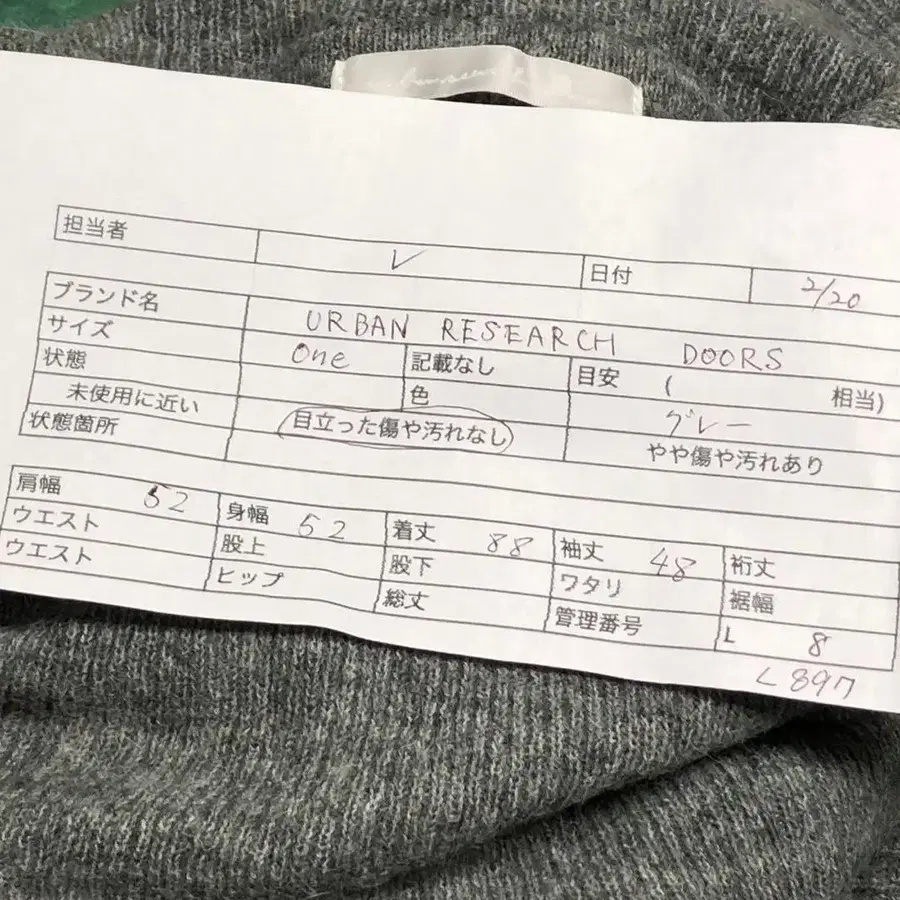 担当者 レ 日付 2/20
ブランド名 URBAN RESEARCH DOORS
サイズ One 記載なし 目安 ( 相当)
状態 色 グレー
未使用に近い 目立った傷や汚れなし やや傷や汚れあり
状態箇所
肩幅 52 身幅 52 着丈 88 袖丈 48 裄丈
ウエスト 股上 股下 ワタリ 裾幅
ウエスト ヒップ 総丈 管理番号 L 8
L897